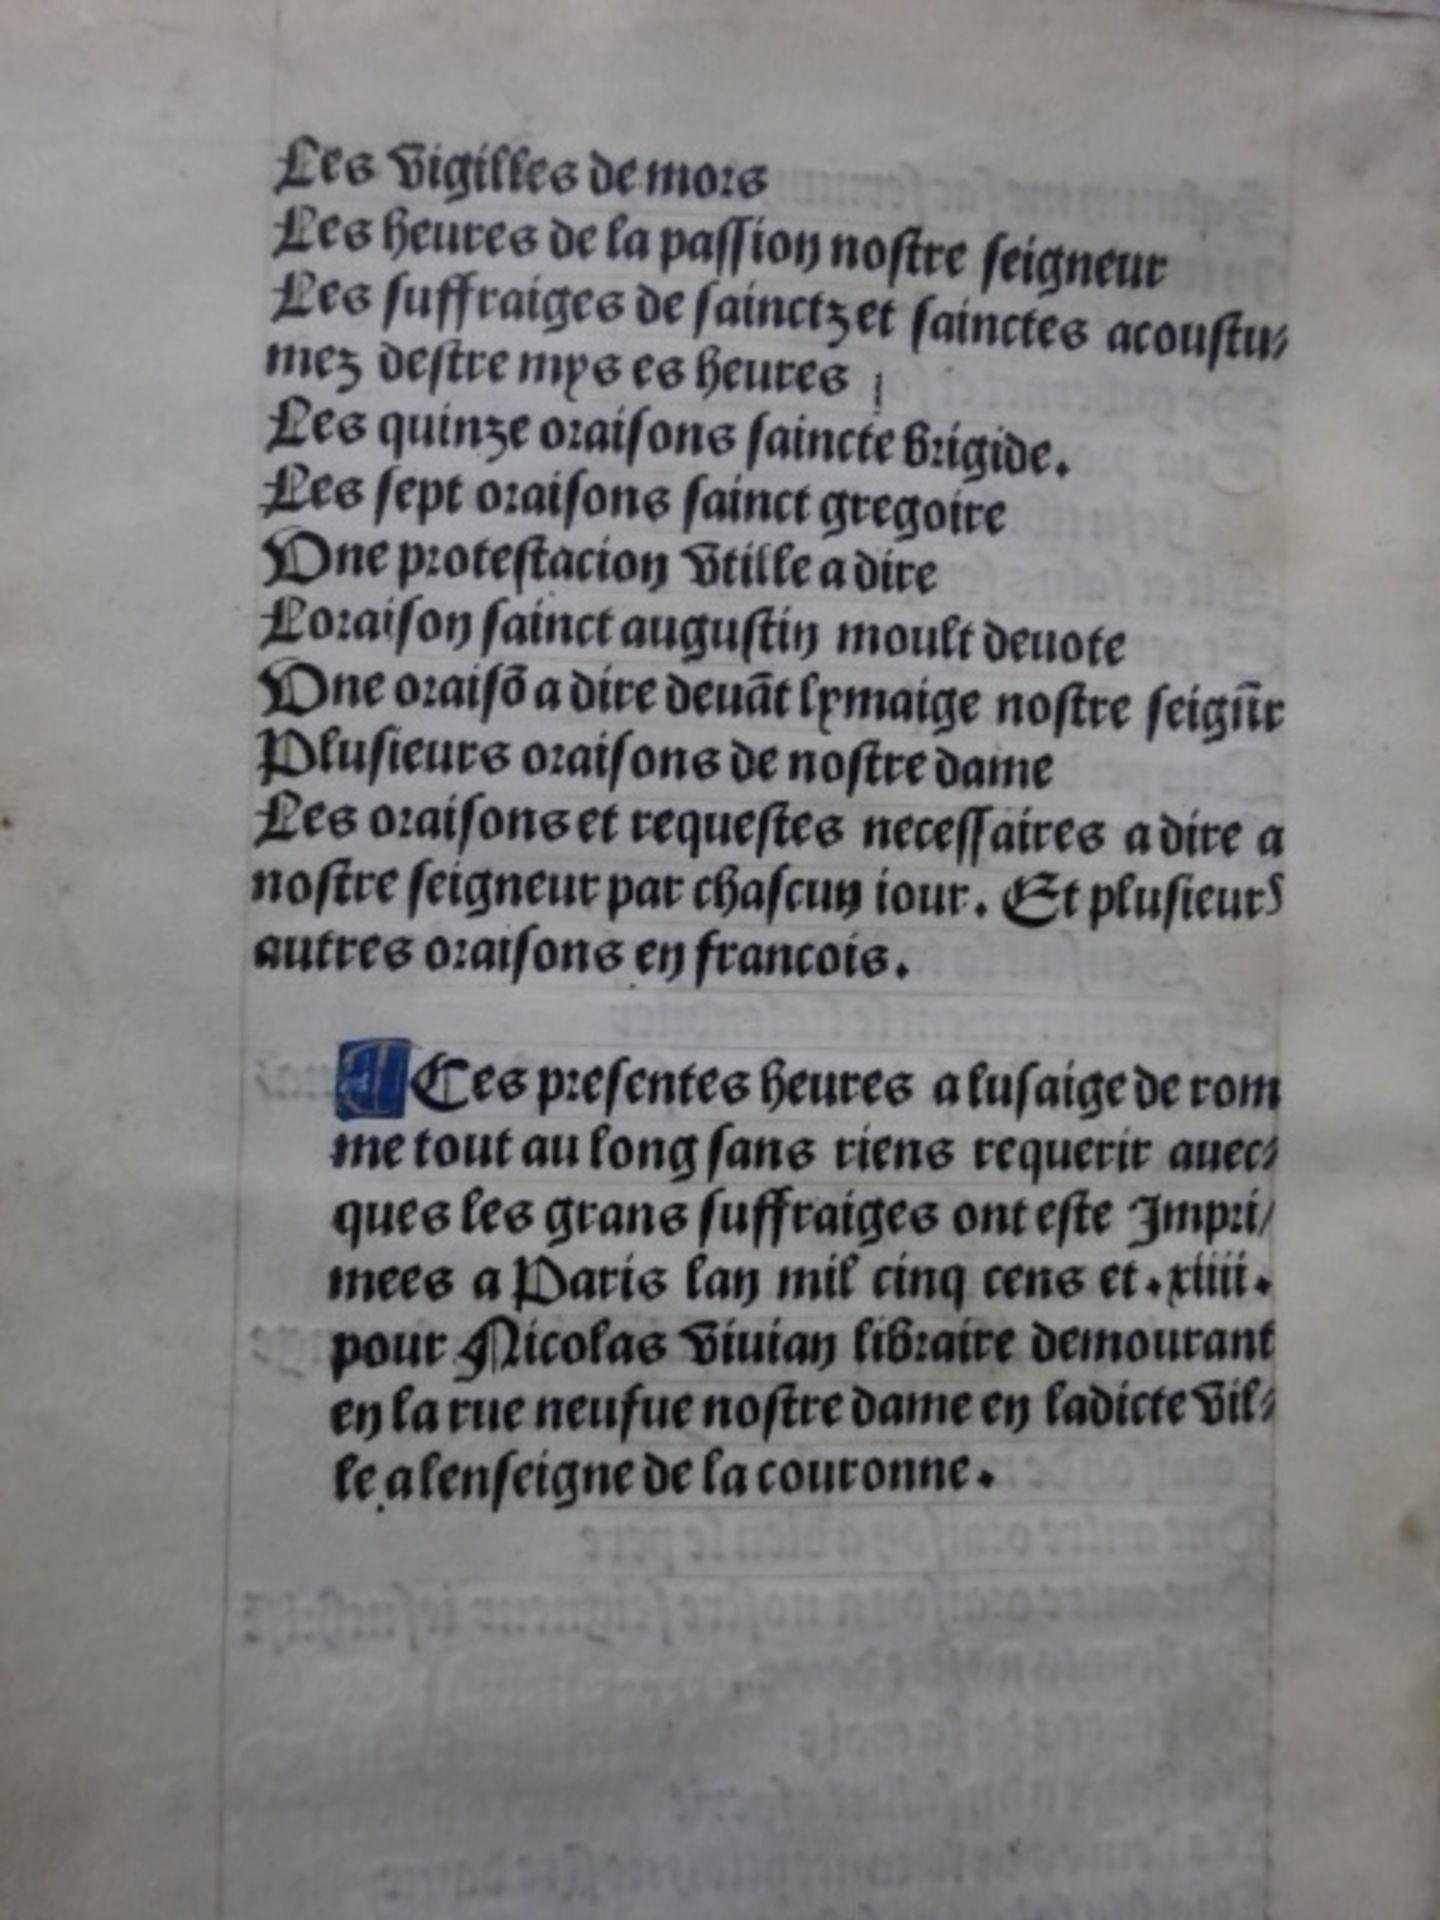 Les vigilles de mors
Les heures de la passion nostre seigneur
Les suffraiges de sainctz et sainctes acoustu⸗
mez destre mys es heures
Les quinze oraisons saincte brigide.
Les sept oraisons sainct gregoire
Vne protestacion vtille a dire
Loraison sainct augustin moult deuote
Vne oraisō a dire deuāt lymaige nostre seign̄r
Plusieurs oraisons de nostre dame
Les oraisons et requestes necessaires a dire a
nostre seigneur par chascun iour. Et plusieurs
autres oraisons en francois.
¶ Ces presentes heures a lusaige de rom
me tout au long sans riens requerir auec⸗
ques les grans suffraiges ont este Impri/
mees a Paris lan mil cinq cens et .xiiii.
pour Nicolas viuian libraire demourant
en la rue neufue nostre dame en ladicte vil⸗
le a lenseigne de la couronne.